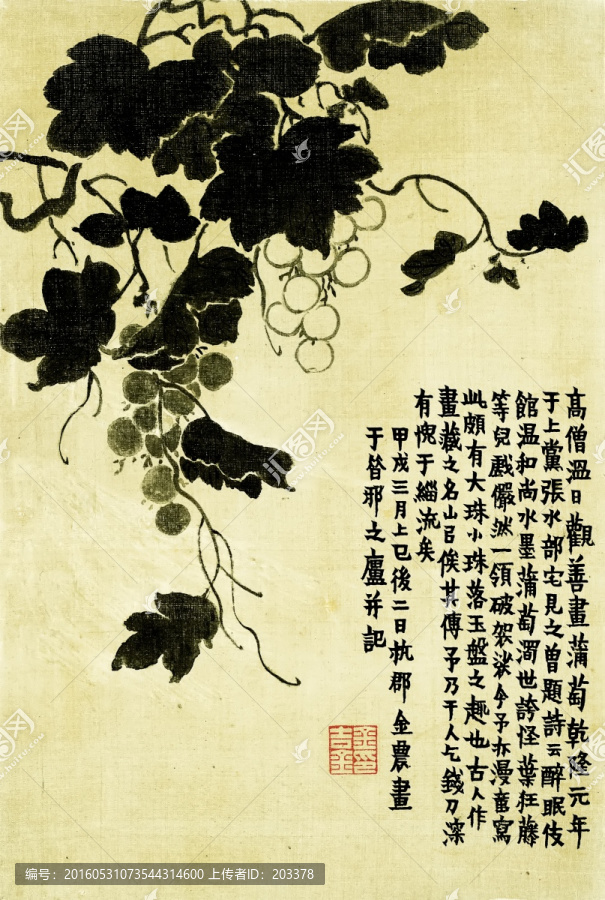 高僧溫日觀善畫蒲萄乾隆元年
于上黨張水部宅見之曾題詩云醉眠伎
館温和尚水墨蒲萄濁世誇怪葉狂藤
等兒戲儼然一領破袈裟今予亦漫畫寫
此頗有大珠小珠落玉盤之趣也古人作
畫藏之名山以俟其傳予乃干人乞錢刀深
有愧于緇流矣
甲戌三月上巳後二日杭郡金農畫
于昝耶之廬并記
金吉金印
汇图网
编号：20160531073544314600 上传者ID：203378